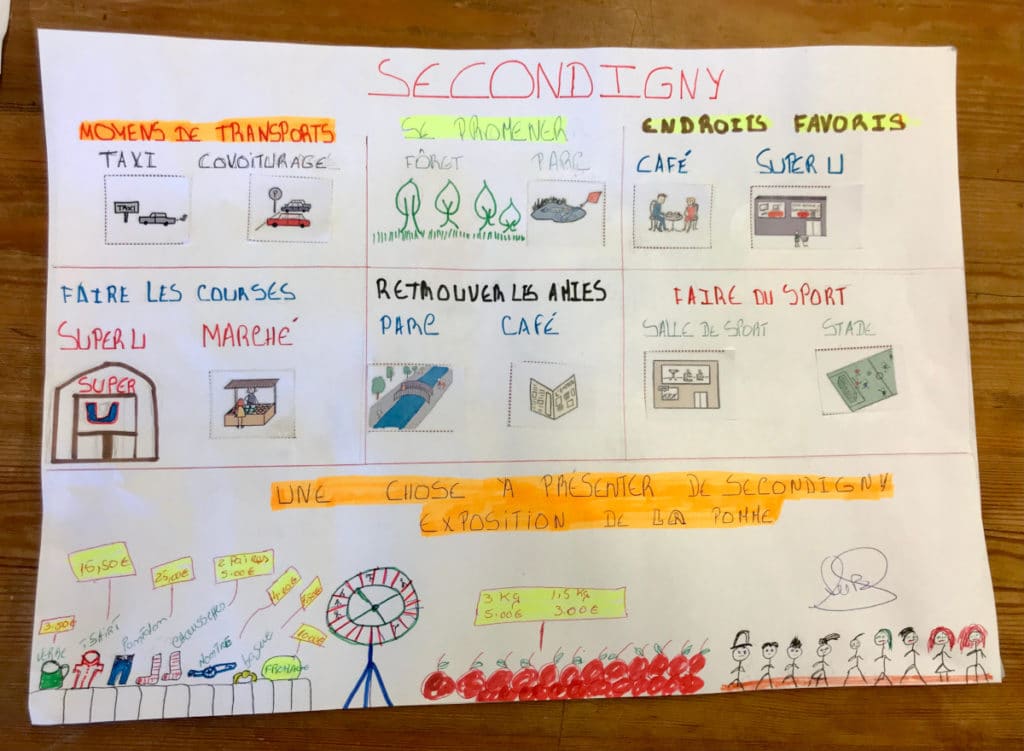 SECONDIGNY
MOYENS DE TRANSPORTS
TAXI COVOITURAGE
TAXI
SE PROMENER
FÔRET PARC
ENDROITS FAVORIS
CAFÉ SUPER U
FAIRE LES COURSES
SUPER U MARCHÉ
SUPER
U
RETROUVER LES AMIES
PARC CAFÉ
FAIRE DU SPORT
SALLE DE SPORT STADE
UNE CHOSE YA PRÉSENTER DE SECONDIGNY
EXPOSITION DE LA POMME
16,50€
25,00€
2 PAIRES
5.00€
T-SHIRT
Pantalon
CHAUSSETTES
MONTRE
FROMAGE
3 Kg 1,5 Kg
5.00€ 3.00€